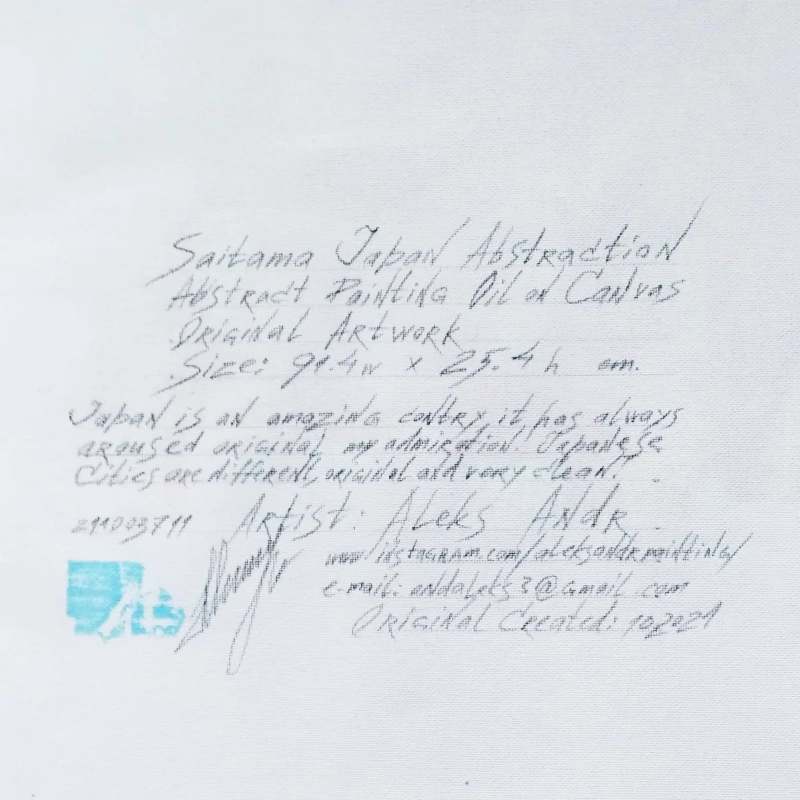 Saitama Japan Abstraction
Abstract Painting Oil on Canvas
Original Artwork
Size: 91.4w x 25.4h cm.
Japan is an amazing contry, it has always
aroused original my admiration! Japanese
Cities are different, original and very clean!
Artist: Aleks Andr
211003711
www.instagram.com/aleksandrpainting/
e-mail: andaleks3@gmail.com
Original Created: 102021